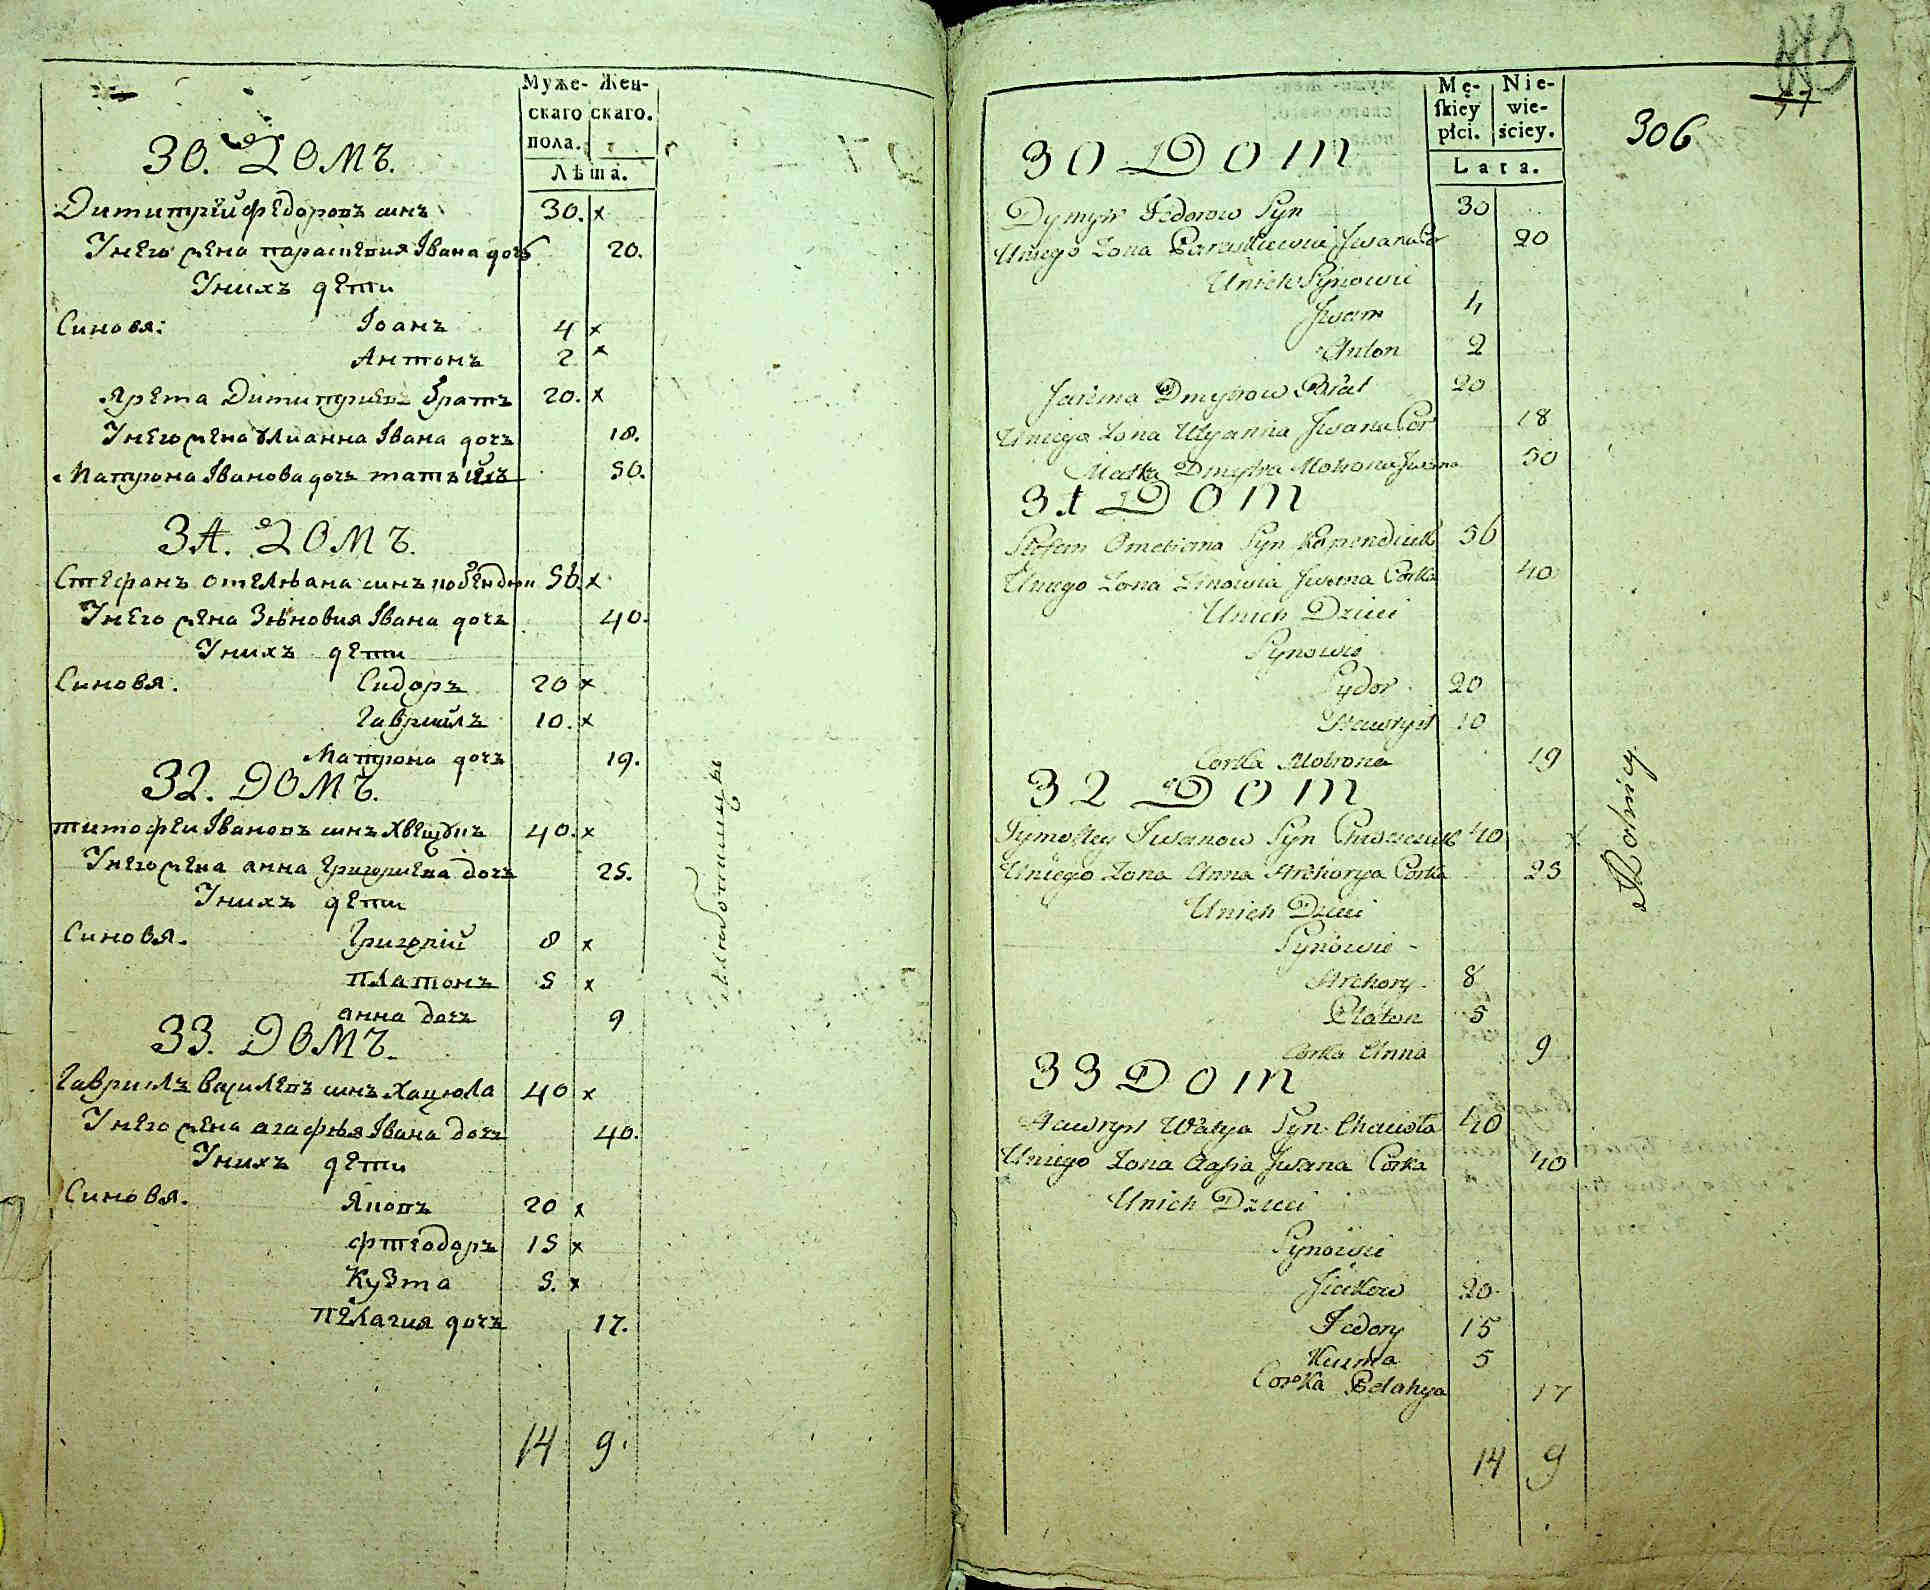 Муже- Жен-
скаго скаго.
пола.
Лѣта.
30. Домъ.
Димитрій Федоровъ синъ 30. x
Унего жена параскевия Івана дочь 20.
Унихъ дети
Синовя: Іоанъ 4 x
Антонъ 2 x
Ярема Димитриевъ братъ 20. x
Унего жена Улианна Івана дочь 18.
Матрона Іванова дочь 50.
31. Домъ.
Стефанъ омеляна синъ 56. x
Унего жена Зѣновия Івана дочь 40.
Унихъ дети
Синовя. Сидоръ 20 x
Гавриилъ 10. x
Матрона дочь 19.
32. Домъ.
тимофей Івановъ синъ 40. x
Унего жена анна Григориева дочь 25.
Унихъ дети
Синовя. Григорій 8 x
платонъ 5 x
анна дочь 9
33. Домъ.
Гавриилъ Василевъ синъ Хацюла 40 x
Унего жена агафѣя Івана дочь 40.
Унихъ дети
Синовя. Яковъ 20 x
фтеодоръ 15 x
Кузма 5. x
пелагия дочь 17.
14 9.
306
Mę-
skiey
płci.
Nie-
wie-
ściey.
Lata.
30 Dom
Dymytr Fedorow Syn 30
Uniego Zona Paraskiewia Jwana Cor 20
Unich Synowie
Jwan 4
Anton 2
Jarema Dmytrow Brat 20
Uniego Zona Ulyanna Jwana Cor 18
Matka Dmytra Motrona Jwana 50
31 Dom
Stefan Omeliana Syn 56
Uniego Zona Zinowia Jwana Corka 40
Unich Dzieci
Synowie
Sydor 20
Hawryił 10
Corka Motrona 19
32 Dom
Tymofiey Jwanow Syn 40
Uniego Zona Anna Hrehorya Corka 25
Unich Dzieci
Synowie
Hrehory 8
Platon 5
Corka Anna 9
33 Dom
Hawrył Wasyla Syn 40
Uniego Zona Agafia Jwana Corka 40
Unich Dzieci
Synowie
Jackow 20
Fedory 15
Kuzma 5
Corka Pelahya 17
14 9
Rolnicy